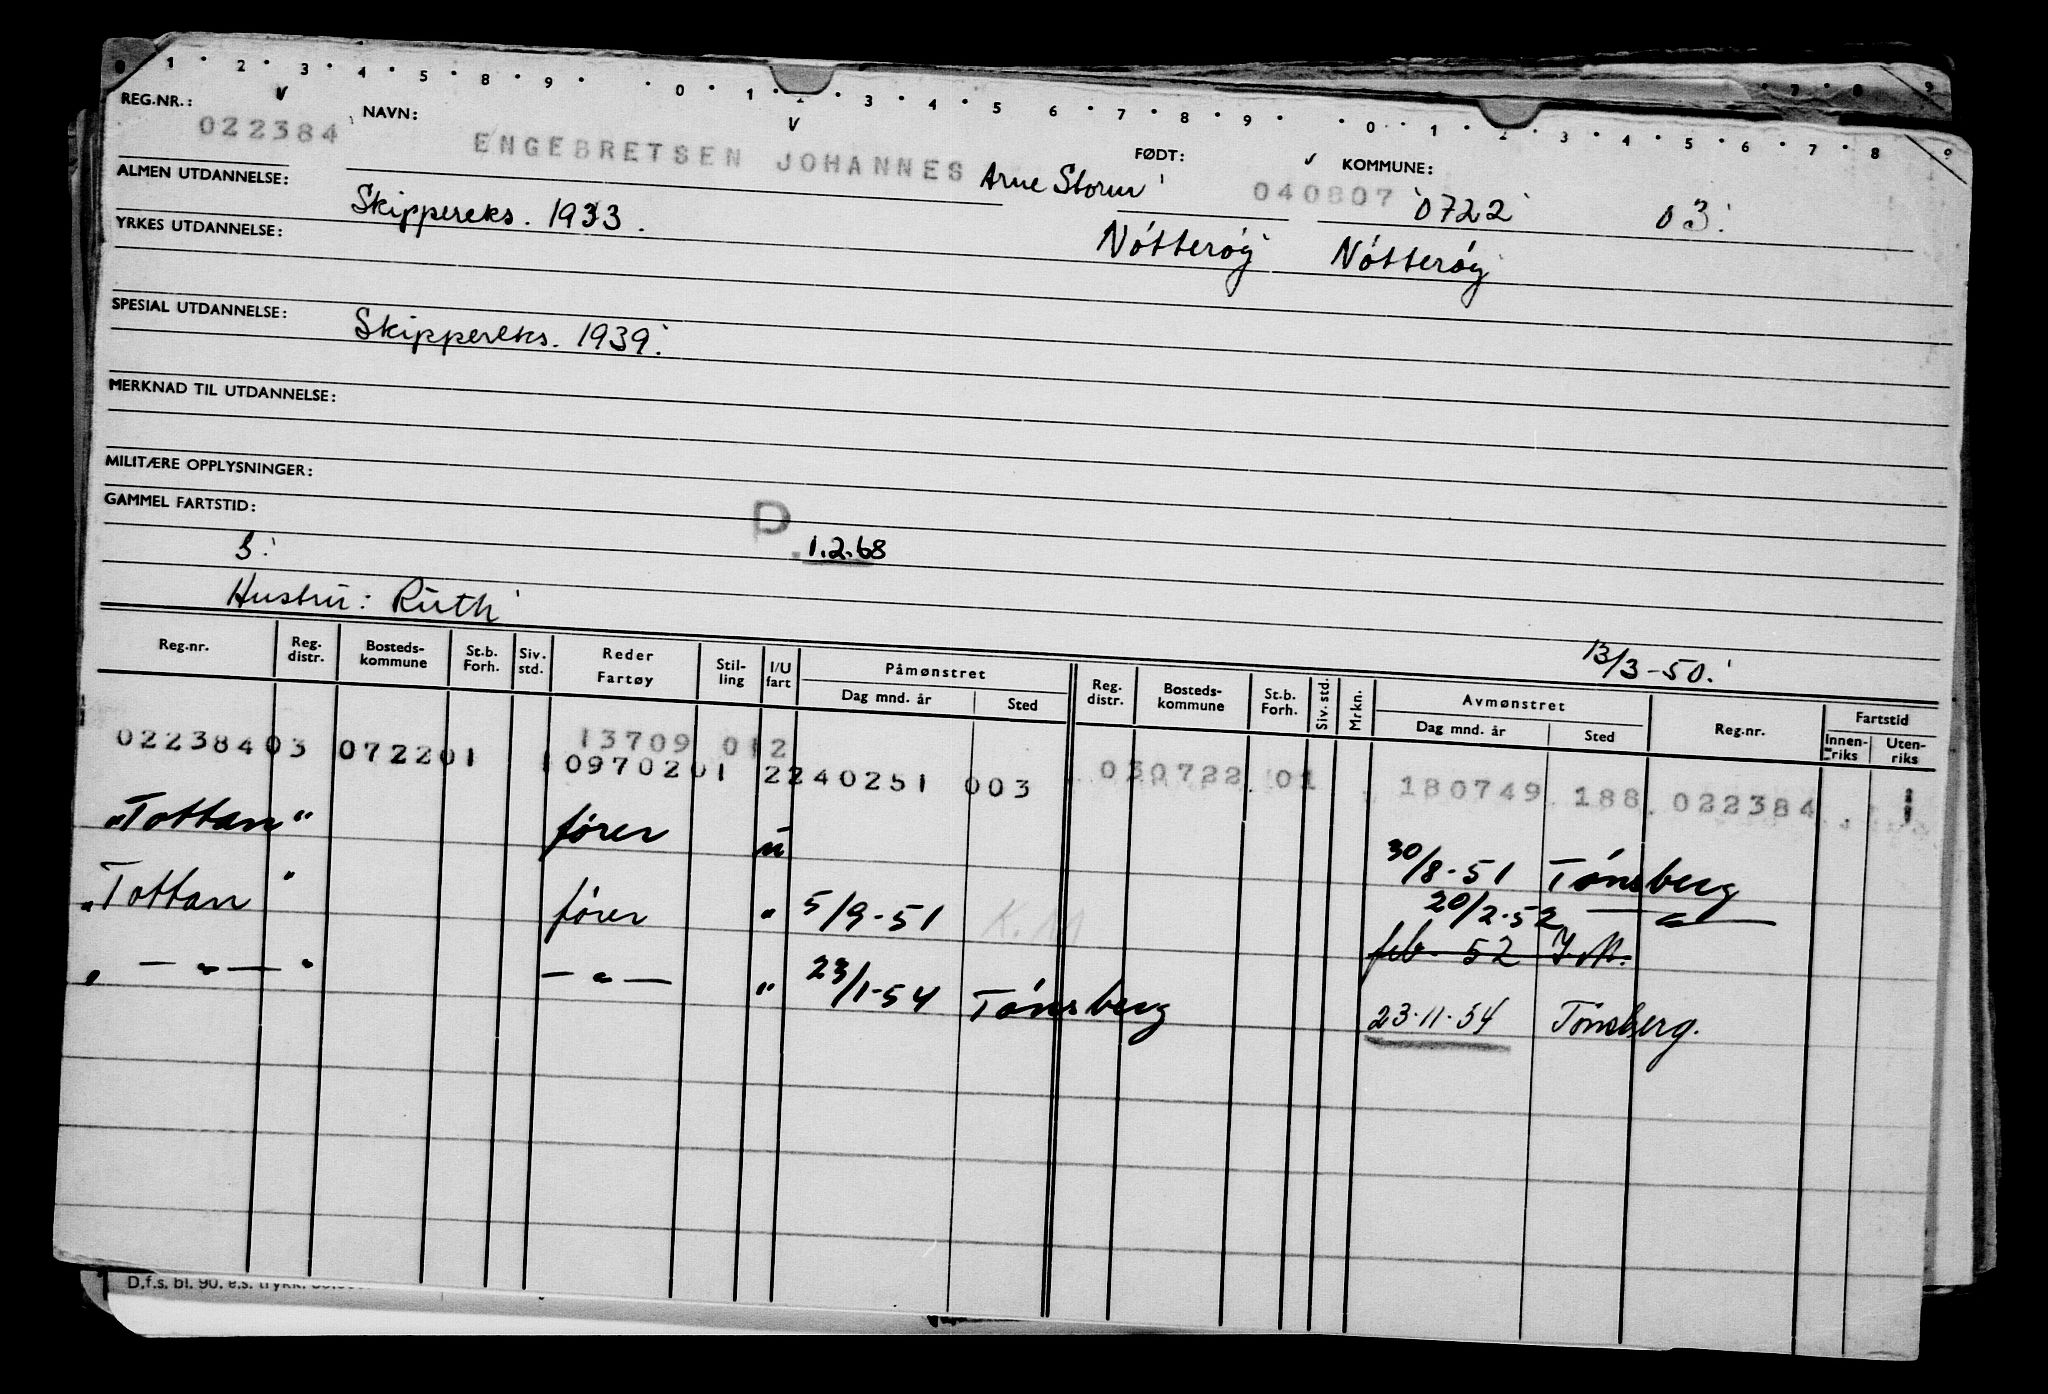 0 1 2 3 4 5 8 9 0 1 2 3 4 5 6 7 8 9 0 1 2 3 4 5 6 7 8 9
REG.NR.: 022384 NAVN: ENGEBRETSEN JOHANNES Arne Storm FØDT: 040807 KOMMUNE: 0722 03
ALMEN UTDANNELSE: Skippereks. 1933. Nótterøy Nótterøy
YRKES UTDANNELSE:
SPESIAL UTDANNELSE: Skippereks. 1939.
MERKNAD TIL UTDANNELSE:
MILITÆRE OPPLYSNINGER:
GAMMEL FARTSTID: P.
3 1.2.68
Hustru: Ruth
13/3-50.
Reg.nr. Reg. distr. Bosteds-kommune St.b. Forh. Siv. std. Reder Fartøy Stil-ling I/U fart Påmønstret Dag mnd. år Sted Reg. distr. Bosteds-kommune St.b. Forh. Siv. std. Mrkn. Avmønstret Dag mnd. år Sted Reg.nr. Fartstid Innen-riks Uten-riks
13709 012
02238403 072201 1 09702 01 2240251 003 030722 01 180749 188 022384
"Tottan" fører u 30/8-51 Tónsberg
"Tottan" fører " 5/9-51 K.M 20/2-52 — " —
feb. 52
" — " — " — " — " 23/1-54 Tónsberg 23-11-54 Tónsberg.
D.f.s. bl. 90. e.s. trykk.